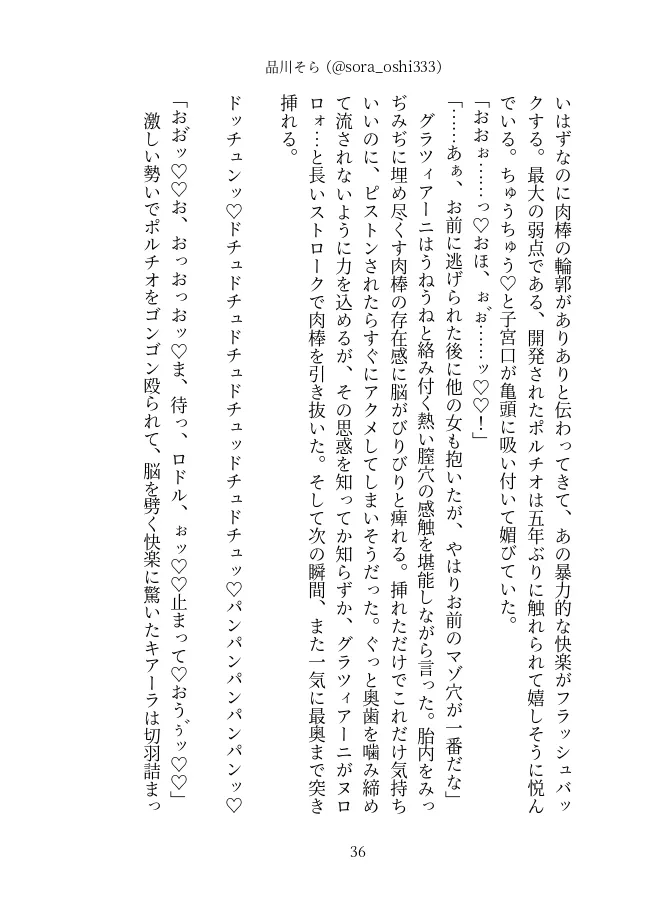 品川そら（@sora_oshi333）
いはずなのに肉棒の輪郭がありありと伝わってきて、あの暴力的な快楽がフラッシュバッ
クする。最大の弱点である、開発されたポルチオは五年ぶりに触れられて嬉しそうに悦ん
でいる。ちゅうちゅう♡と子宮口が亀頭に吸い付いて媚びていた。
「おおぉ……っ♡おほ、ぉ゛ぉ……ッ♡♡！」
「……あぁ、お前に逃げられた後に他の女も抱いたが、やはりお前のマゾ穴が一番だな」
グラツィアーニはうねうねと絡み付く熱い膣穴の感触を堪能しながら言った。胎内をみっ
ぢみぢに埋め尽くす肉棒の存在感に脳がびりびりと痺れる。挿れただけでこれだけ気持ち
いいのに、ピストンされたらすぐにアクメしてしまいそうだった。ぐっと奥歯を噛み締め
て流されないように力を込めるが、その思惑を知ってか知らずか、グラツィアーニがヌロ
ロォ…と長いストロークで肉棒を引き抜いた。そして次の瞬間、また一気に最奥まで突き
挿れる。
ドッチュンッ♡ドチュドチュドチュドチュッドチュドチュッ♡パンパンパンパンパンッ♡
「おお゛ッ♡♡お、おっおっおッ♡ま、待っ、ロドル、ぉッ♡♡止まって♡おうぅ゛ッ♡♡」
激しい勢いでポルチオをゴンゴン殴られて、脳を劈く快楽に驚いたキアーラは切羽詰まっ
36